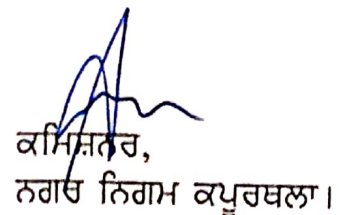 ਕਮਿਸ਼ਨਰ,
ਨਗਰ ਨਿਗਮ ਕਪੂਰਥਲਾ।